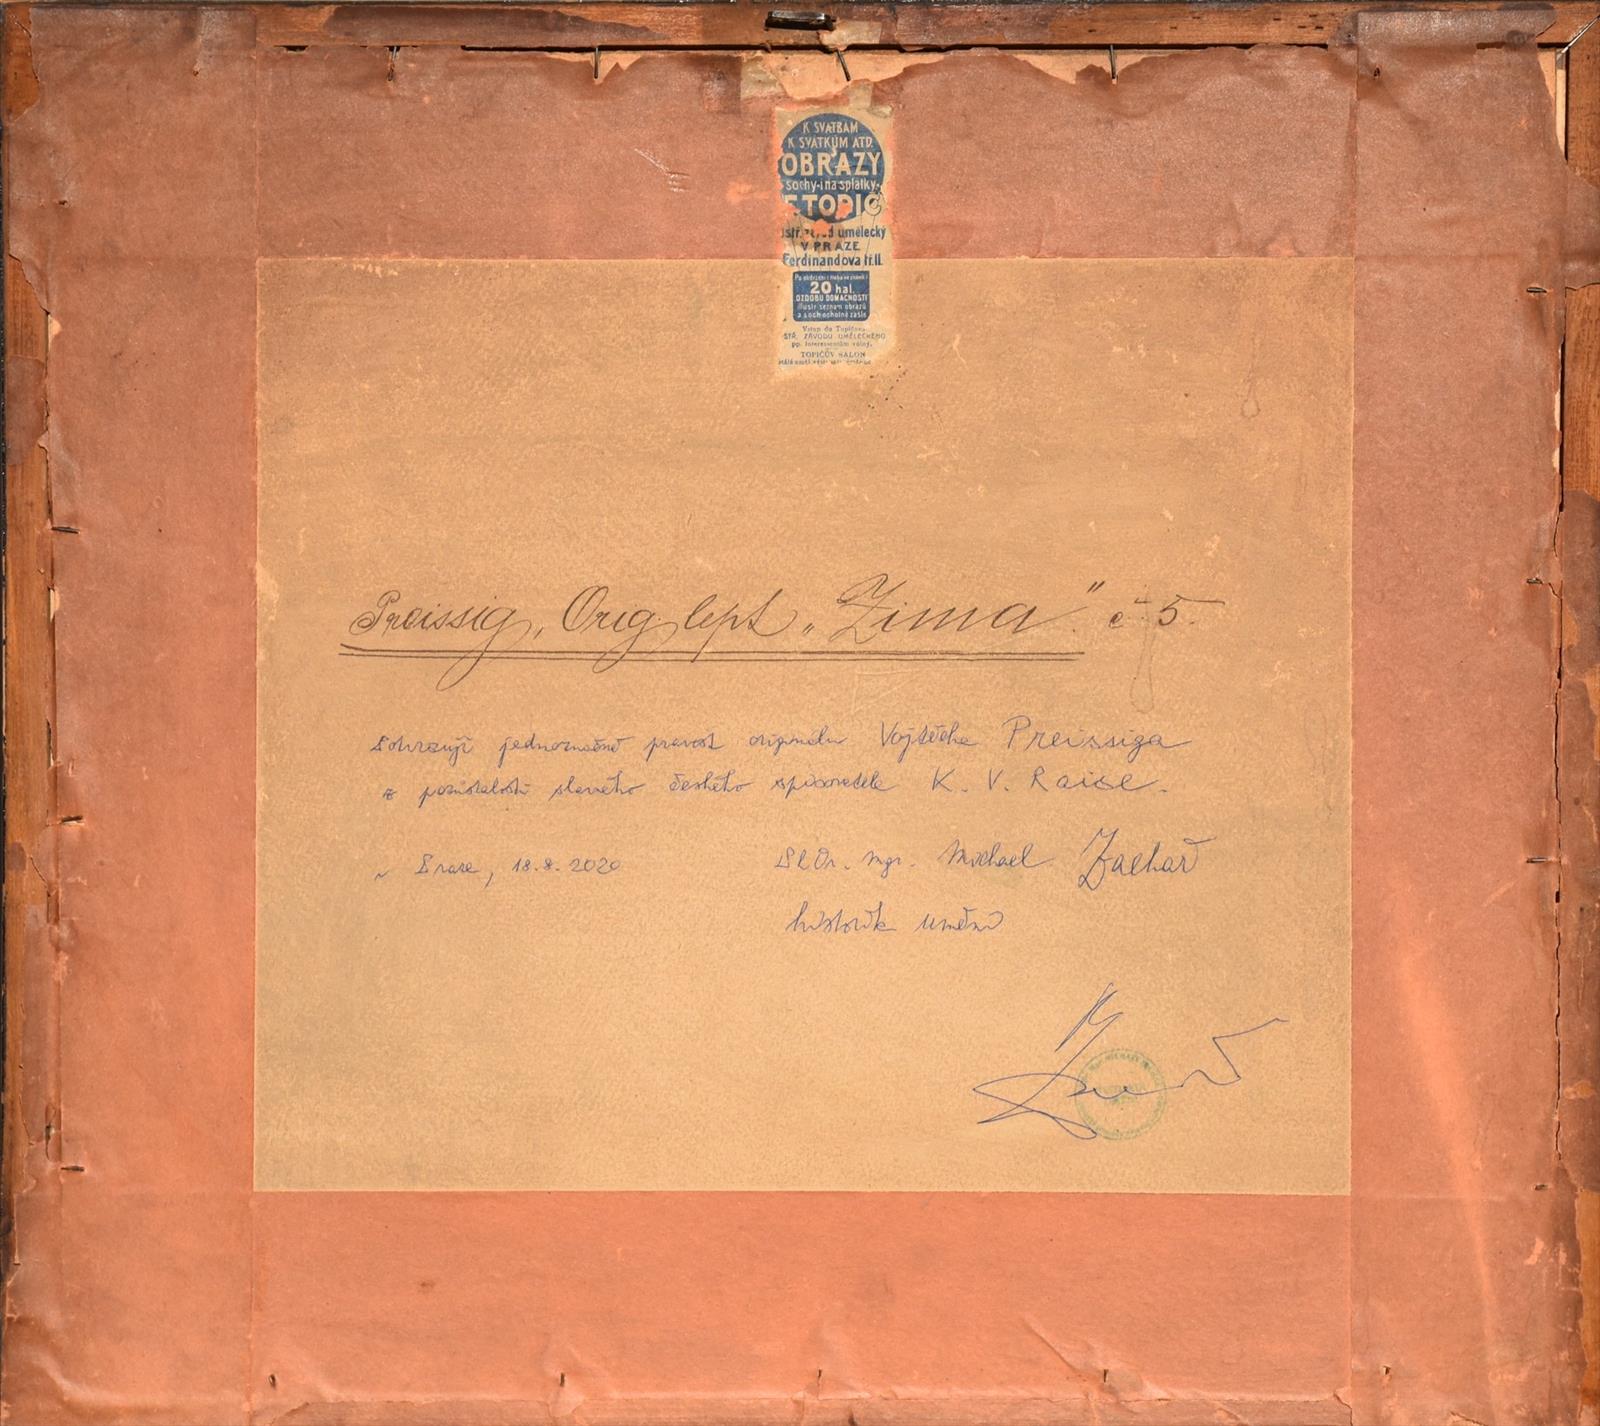 K SVATBÁM
K SVÁTKŮM ATD.
OBRAZY
sochy-i na splátky-
F. TOPIČ
umělecký
V PRAZE
Ferdinandova tř. 11.
20 hal.
OZDOBU DOMÁCNOSTI
illustr. seznam obrazů
a soch ochotně zašle
Vstup do Topičova
ZÁVODU UMĚLECKÉHO
pp. interessentům volný.
TOPIČŮV SALON
Preissig, Orig lept „Zima“ č 5.
Potvrzuji jednoznačně pravost originálu Vojtěcha Preissiga
z pozůstalosti slavného českého spisovatele K. V. Raise.
v Praze, 18.8.2020 PhDr. mgr. Michael Zachař
historik umění